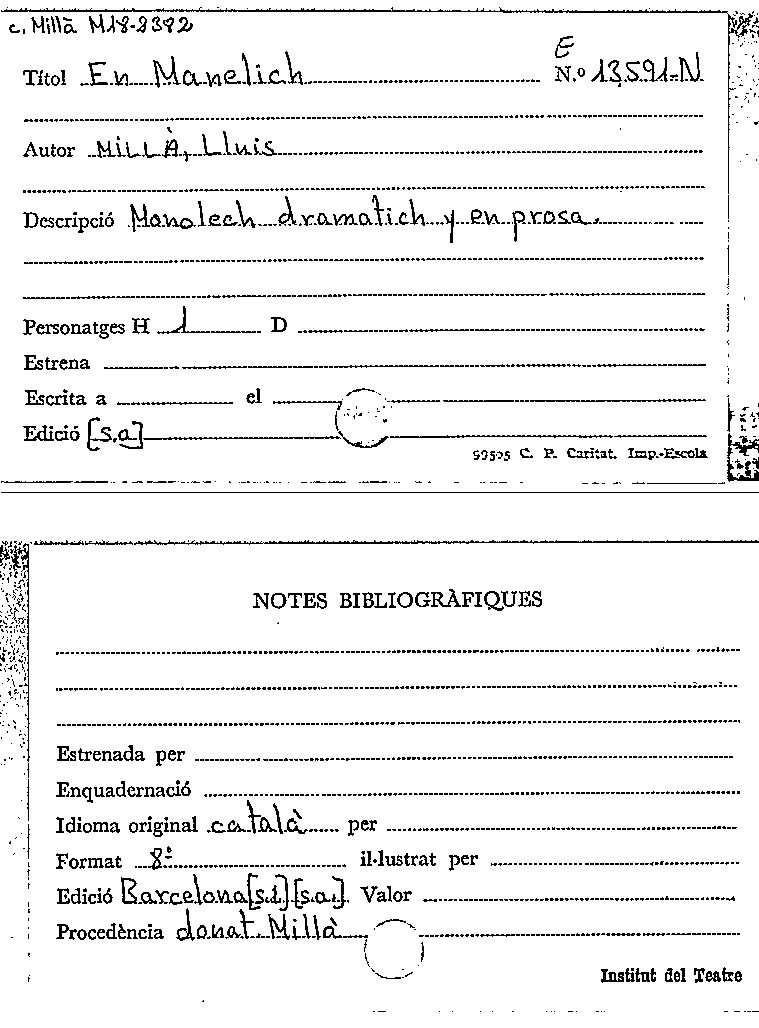 c. Millà M18-2392
E
Títol En Manelich N.º 13.591-N
Autor MILLÀ, Lluis
Descripció Monolech dramatich y en prosa.
Personatges H 1 D
Estrena
Escrita a el
Edició [s.a]
99505 C. P. Caritat. Imp.-Escola
NOTES BIBLIOGRÀFIQUES
Estrenada per
Enquadernació
Idioma original català per
Format 8º il·lustrat per
Edició Barcelona [s.i] [s.a.]. Valor
Procedència donat Millà
Institut del Teatre